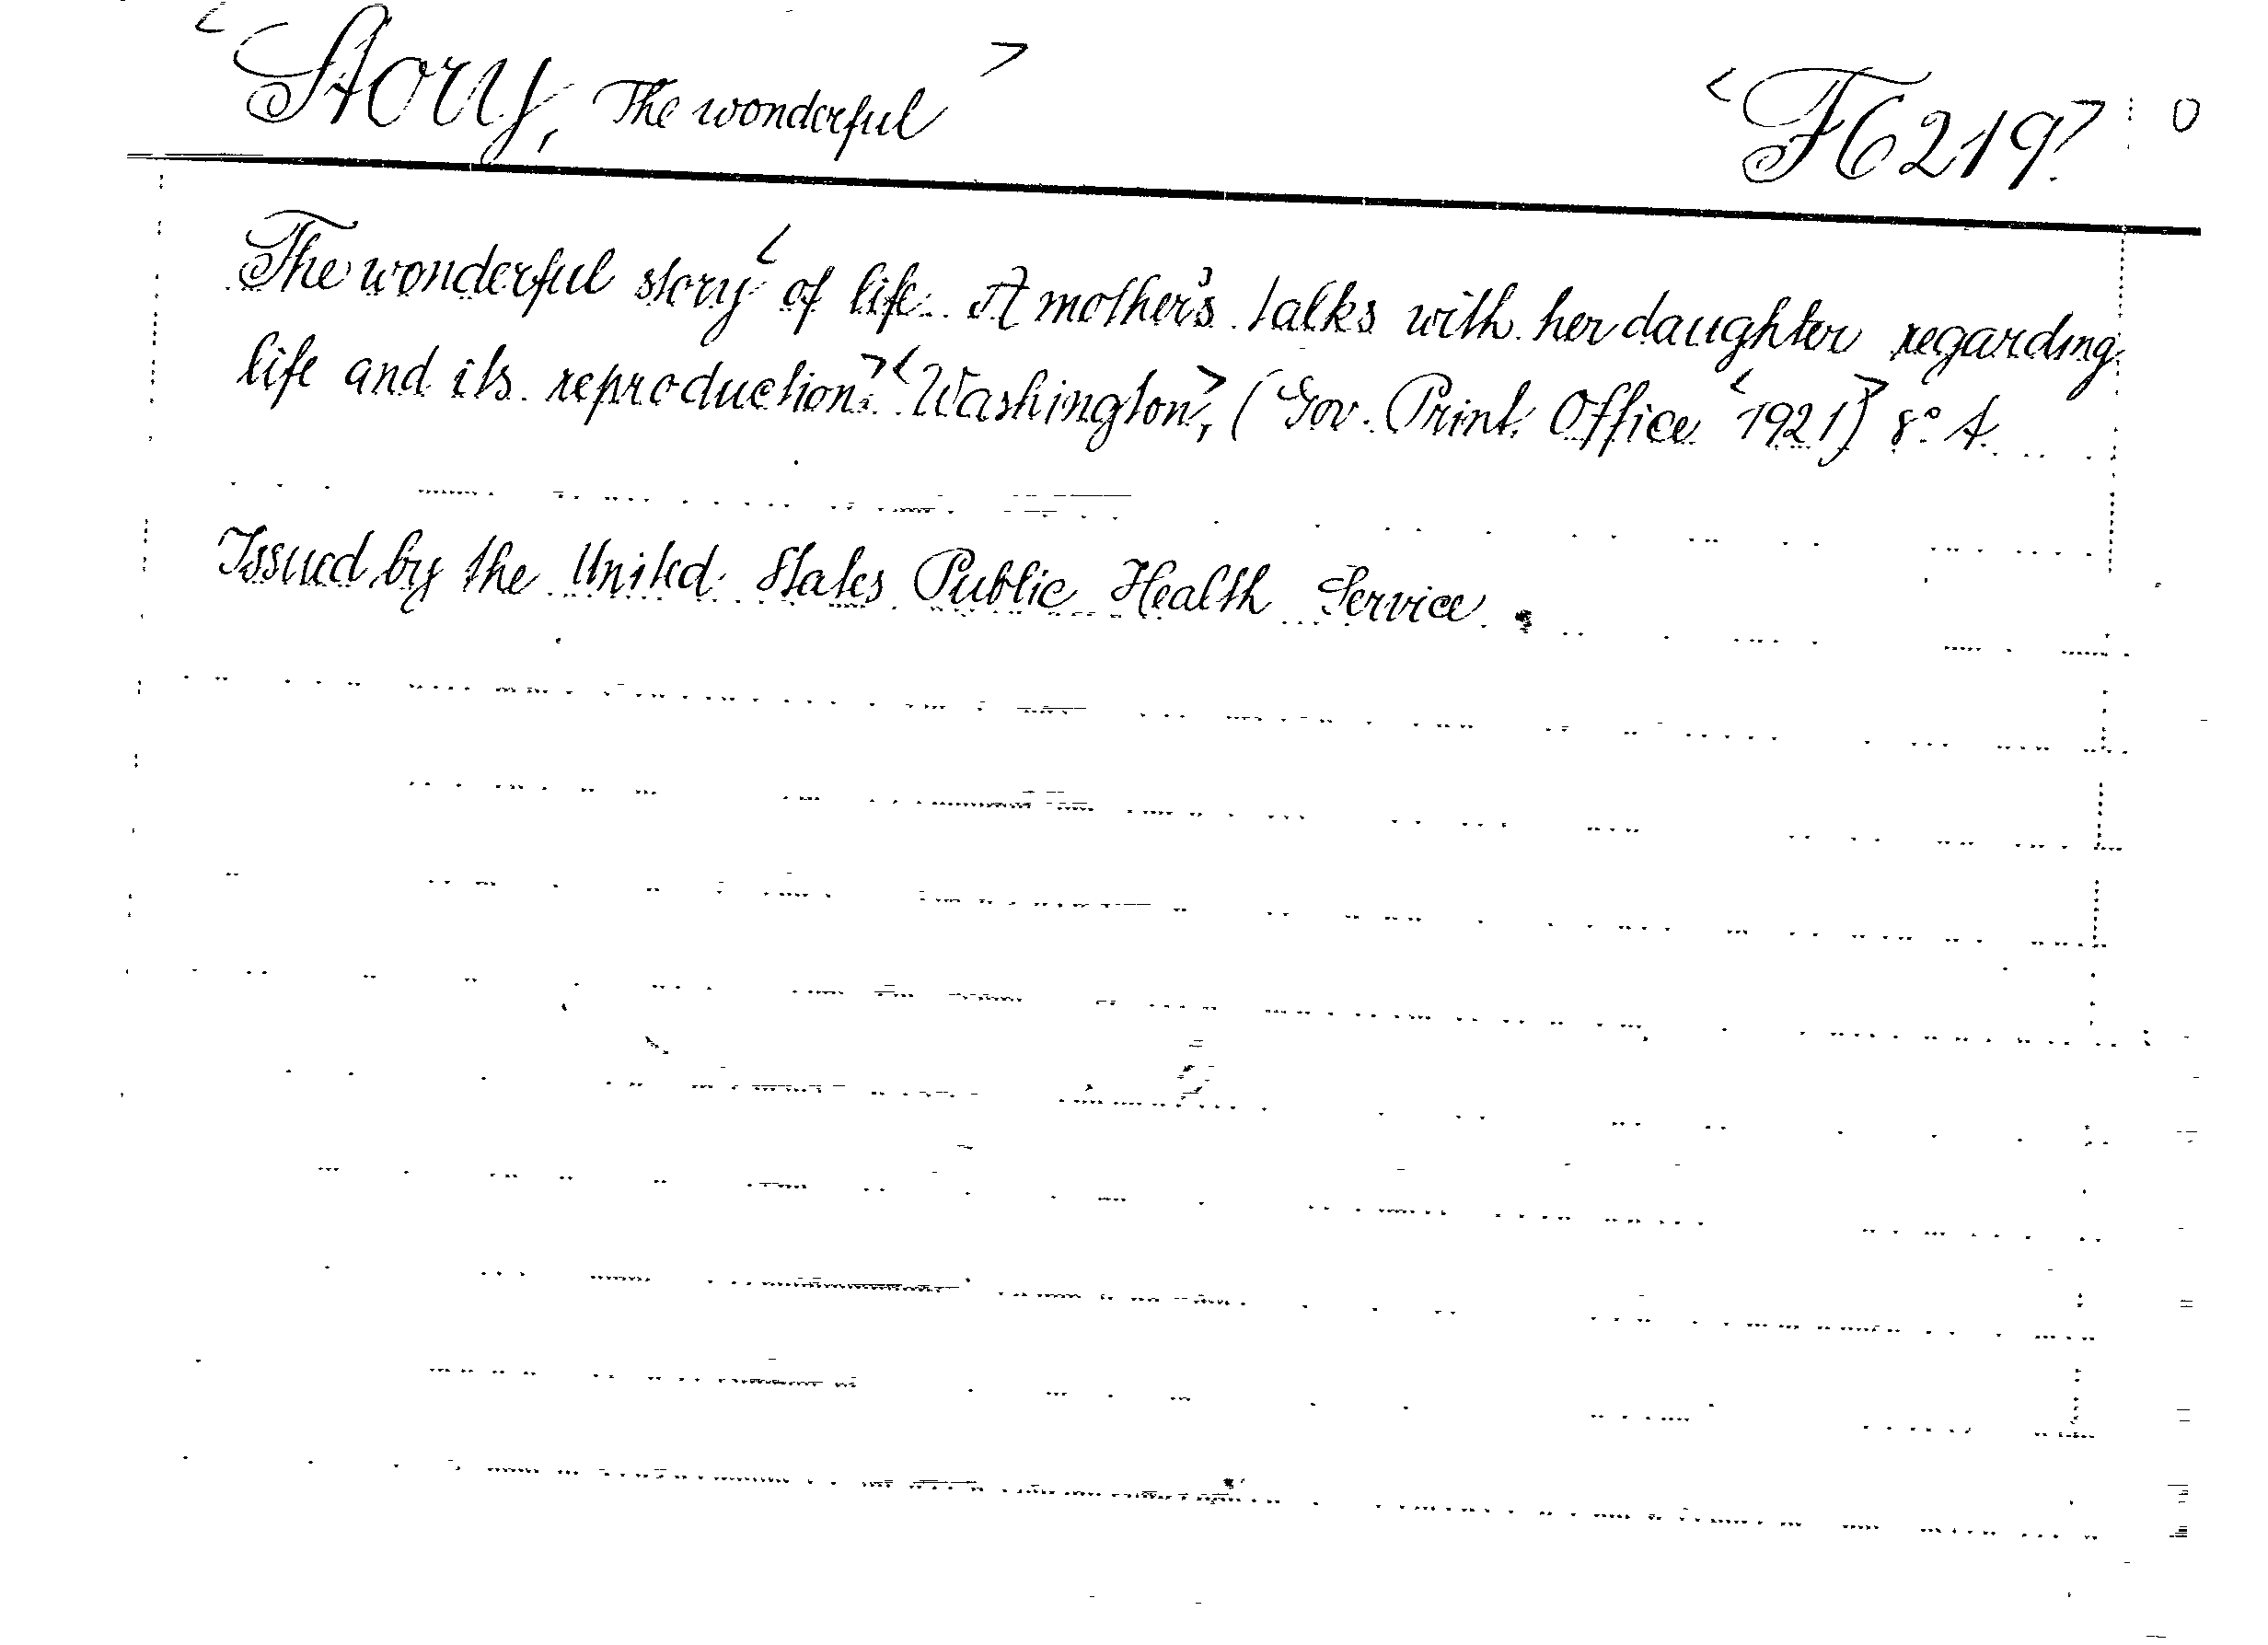 <Story, The wonderful> <F6 219> 0
The wonderful story< of life. A mother's talks with her daughter regarding
life and its reproduction.> <Washington>, (Gov. Print. Office <1921>) 8° A.
Issued by the United States Public Health Service.